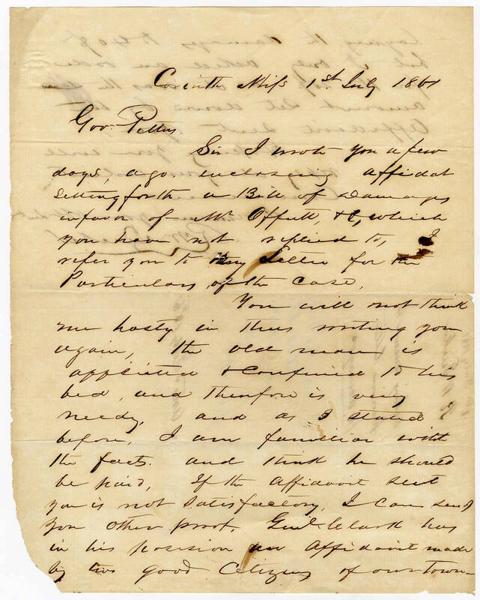 Corinth Miss 1st July 1861
Gov. Pettus
Sir I wrote you a few
days, ago. inclosing affidat
setting forth a Bill of Damages
in favor of Offutt, & C, which
you have not replied to, I
refer you to my Letter for the
Particulars of the Case,
You will not think
me hasty in thus writing you
again, the old man is
afflicted & confined to his
bed, and therefore is very
needy, and as I stated
before, I am familiar with
the facts. and think he should
be paid, If the Affidavit sent
you is not satisfactory, I can send
you other proof. Genl. Clark has
in his possession an Affidavit made
by two good Citizens of our town